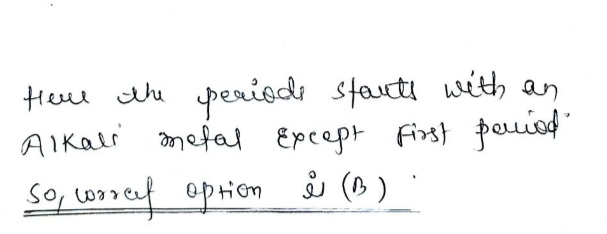 Here the periods starts with an
Alkali metal Except First period
So, correct option is (B).